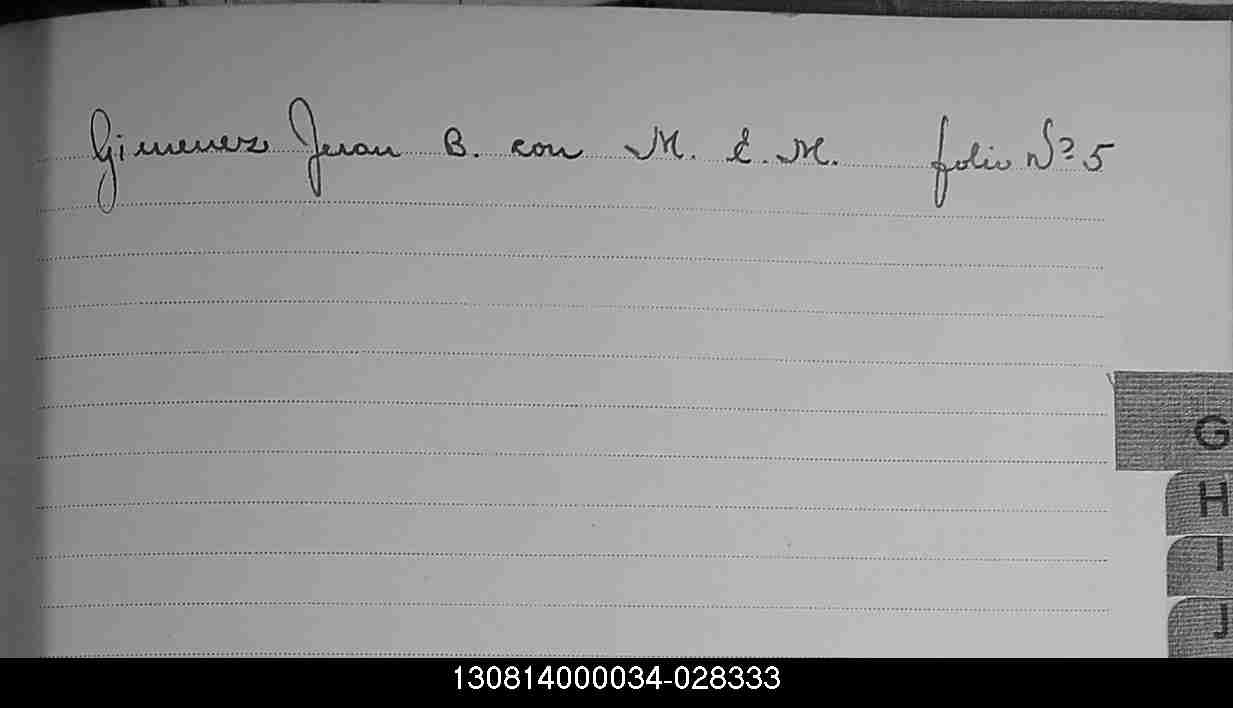 Gimenez Juan B. con M. E. M. folio Nº 5
G
H
I
J
130814000034-028333